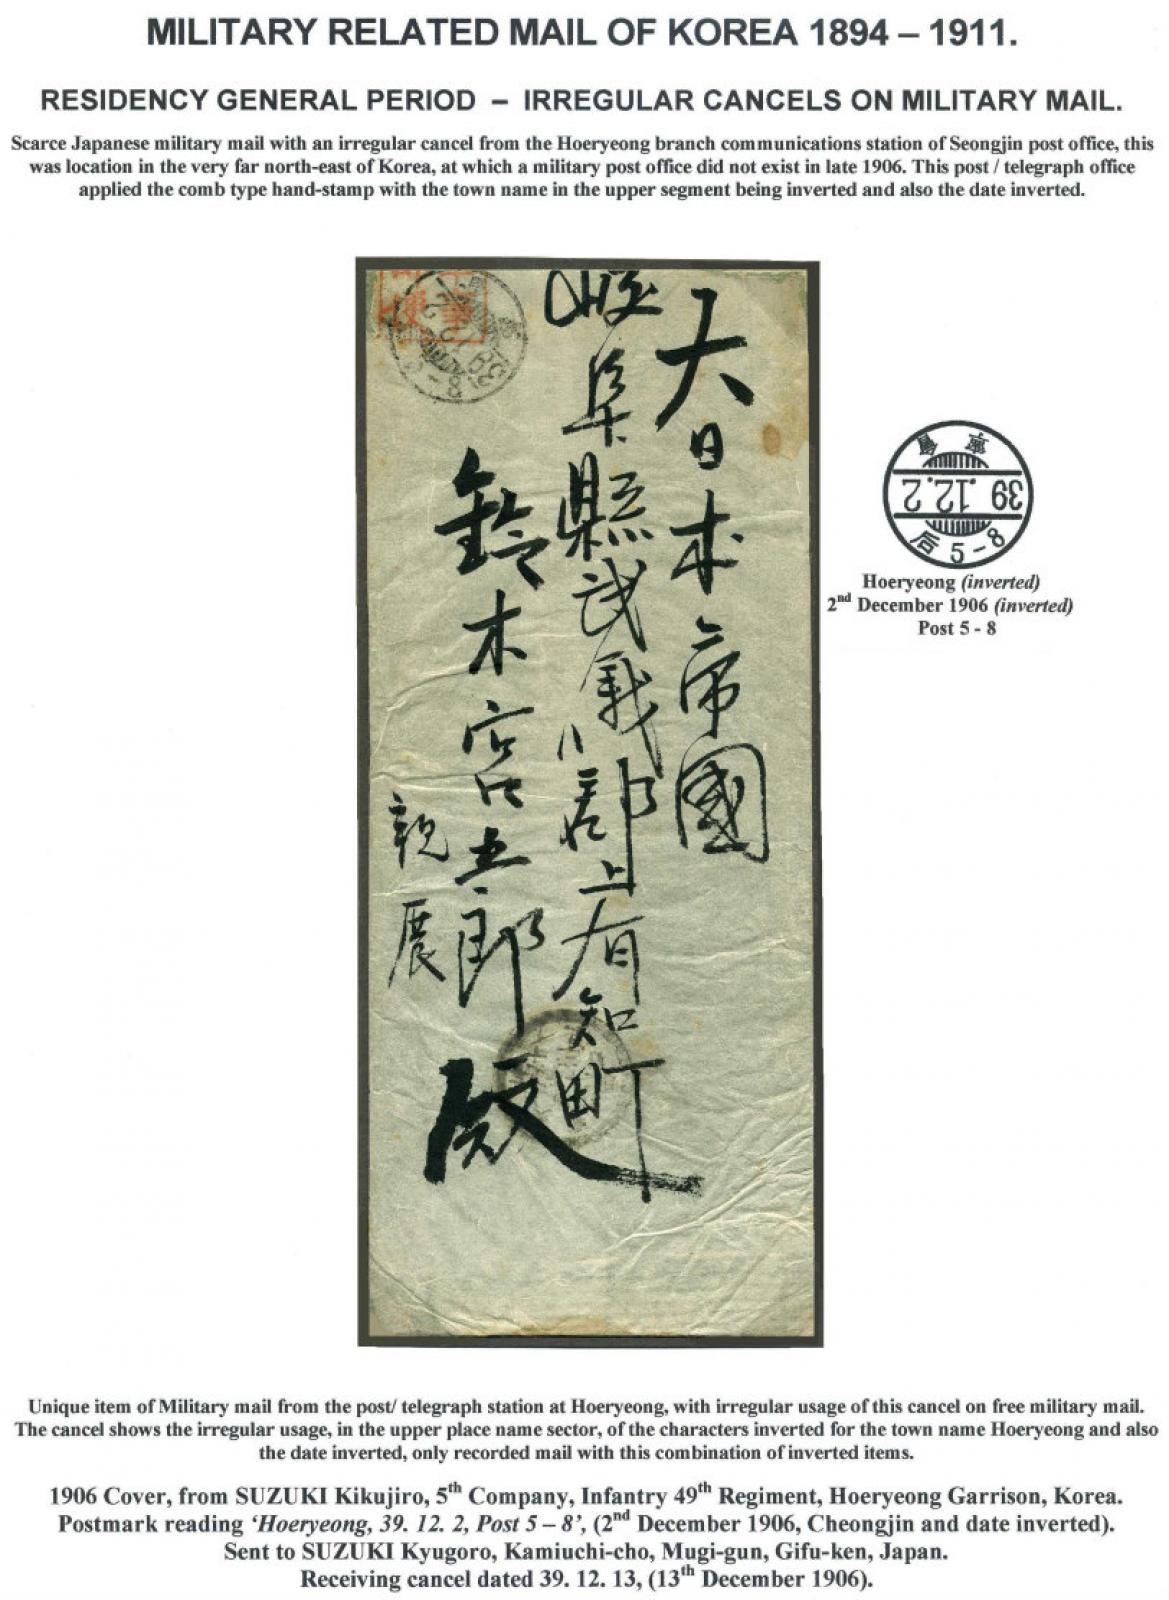 MILITARY RELATED MAIL OF KOREA 1894 – 1911.
RESIDENCY GENERAL PERIOD – IRREGULAR CANCELS ON MILITARY MAIL.
Scarce Japanese military mail with an irregular cancel from the Hoeryeong branch communications station of Seongjin post office, this
was location in the very far north-east of Korea, at which a military post office did not exist in late 1906. This post / telegraph office
applied the comb type hand-stamp with the town name in the upper segment being inverted and also the date inverted.
大日本帝國
岐阜縣武儀郡上有知町
鈴木宮五郎殿
親展
39.12.2
后 5-8
Hoeryeong (inverted)
2nd December 1906 (inverted)
Post 5 - 8
Unique item of Military mail from the post/ telegraph station at Hoeryeong, with irregular usage of this cancel on free military mail.
The cancel shows the irregular usage, in the upper place name sector, of the characters inverted for the town name Hoeryeong and also
the date inverted, only recorded mail with this combination of inverted items.
1906 Cover, from SUZUKI Kikujiro, 5th Company, Infantry 49th Regiment, Hoeryeong Garrison, Korea.
Postmark reading ‘Hoeryeong, 39. 12. 2, Post 5 – 8’, (2nd December 1906, Cheongjin and date inverted).
Sent to SUZUKI Kyugoro, Kamiuchi-cho, Mugi-gun, Gifu-ken, Japan.
Receiving cancel dated 39. 12. 13, (13th December 1906).